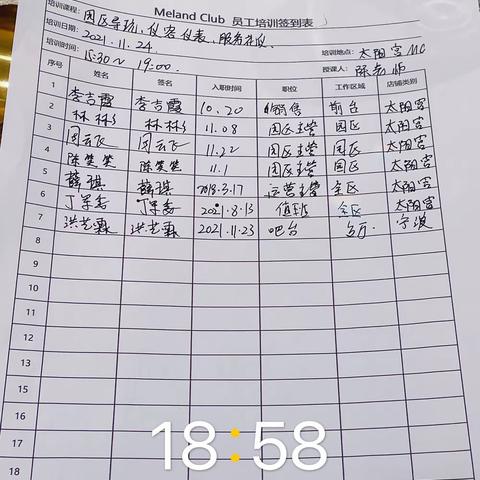 Meland Club 员工培训签到表
培训课程: 园区导玩、仪容仪表、服务礼仪、
培训日期: 2021.11.24 培训地点: 太阳宫MC
培训时间: 15:30~19:00 授课人: 陈老师
序号 姓名 签名 入职时间 职位 工作区域 店铺类别
1 李吉霞 李吉霞 10.20 销售 前台 太阳宫
2 林林 林林 11.08 园区主管 园区 太阳宫
3 周云飞 周云飞 11.22 园区主管 园区 太阳宫
4 陈笑笑 陈笑笑 11.1 园区主管 园区 太阳宫
5 薛琪 薛琪 2018.3.17 运营主管 全区 太阳宫
6 2021.8.13 值班 全区 太阳宫
7 洪艺霖 洪艺霖 2021.11.23 吧台 宁波
8
9
10
11
12
13
15
16
17
18
18:58